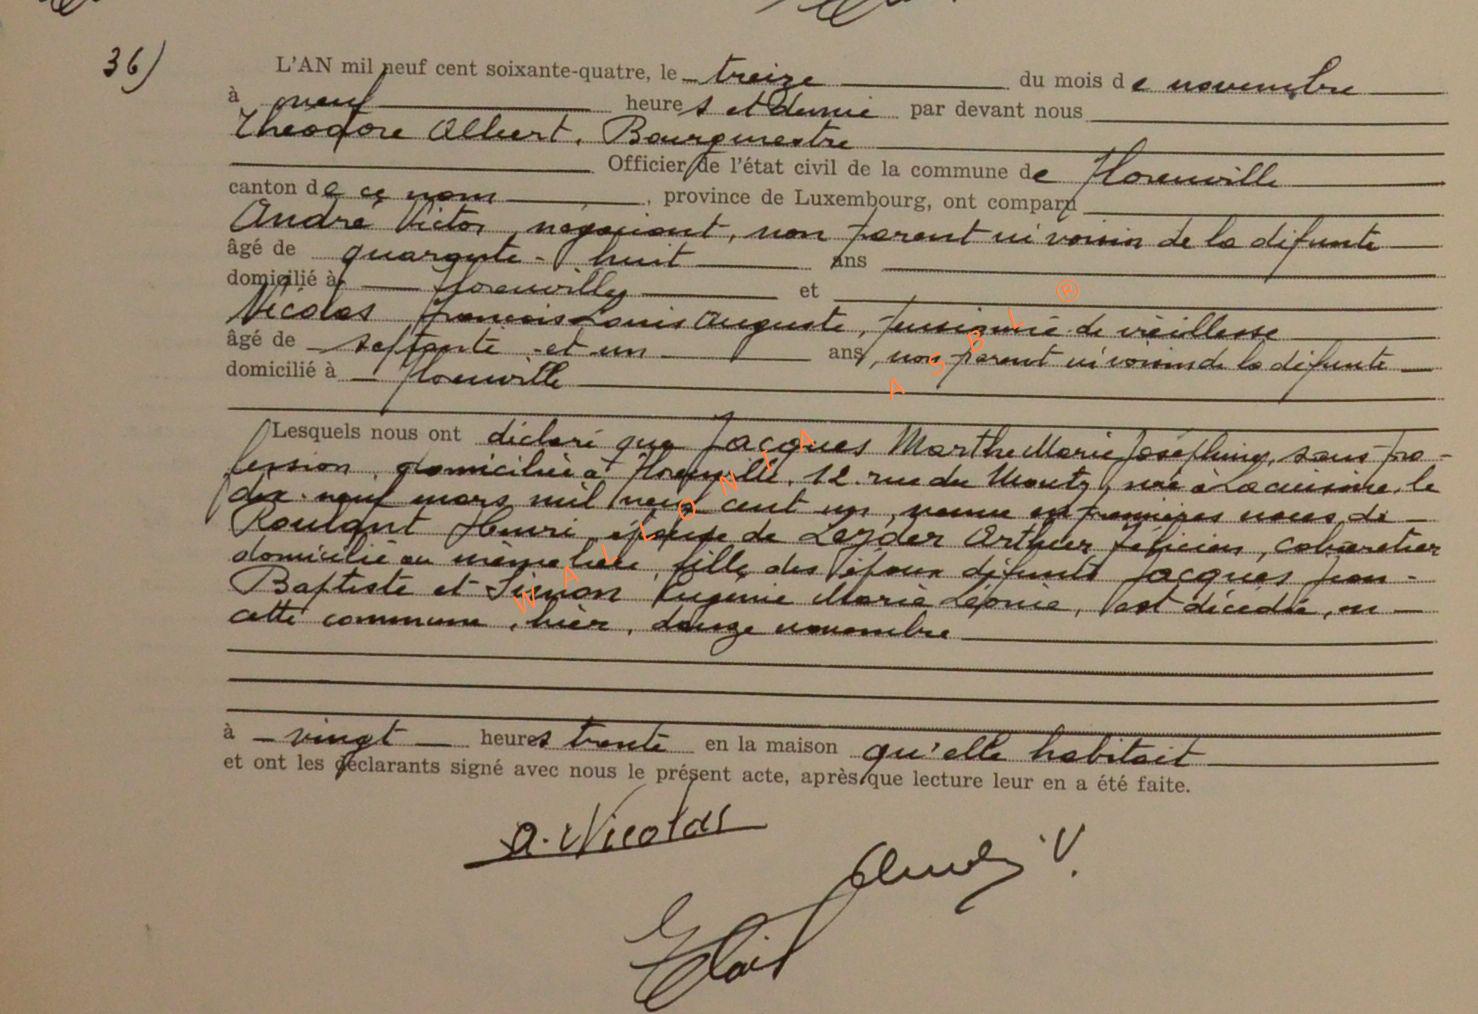 36)
L'AN mil neuf cent soixante-quatre, le treize du mois de novembre
à neuf heures et demie par devant nous
Théodore Albert, Bourgmestre
Officier de l'état civil de la commune de Florenville
canton de ce nom, province de Luxembourg, ont comparu
André Victor, négociant, non parent ni voisin de la défunte
âgé de quarante-huit ans
domicilié à Florenville et
Nicolas François Louis Auguste, pensionné de vieillesse
âgé de septante et un ans, non parent ni voisin de la défunte
domicilié à Florenville
Lesquels nous ont déclaré que Jacques Marthe Marie Joséphine, sans pro-
fession, domiciliée à Florenville, 12 rue du, née à Lacuisine, le
dix-neuf mars mil neuf cent un, veuve en premières noces de
Roulant Henri, épouse de Lejder Arthur Félicien, cabaretier
domicilié au même lieu, fille des époux défunts Jacques Jean-
Baptiste et Simon Eugénie Marie Léonie, est décédée, en
cette commune, hier, douze novembre
à vingt heures trente en la maison qu'elle habitait
et ont les déclarants signé avec nous le présent acte, après que lecture leur en a été faite.
A. Nicolas
André V.
WALLONIA ASBL ®